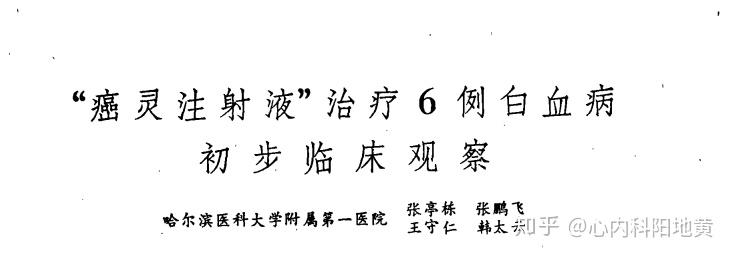 “癌灵注射液”治疗6例白血病
初步临床观察
哈尔滨医科大学附属第一医院 张亭栋 张鹏飞
王守仁 韩太云
知乎 @心内科阳地黄